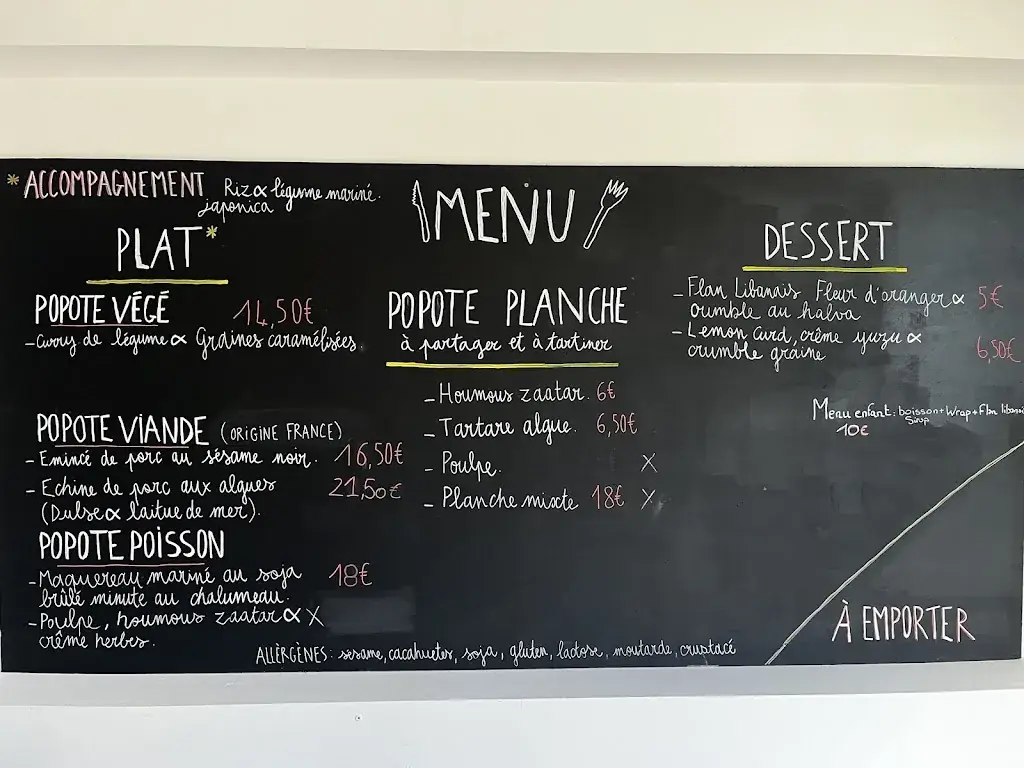 * ACCOMPAGNEMENT Riz & légume mariné.
japonica
PLAT *
POPOTE VÉGÉ 14,50€
- Curry de légume & Graines caramélisées.
POPOTE VIANDE (ORIGINE FRANCE)
- Emincé de porc au sésame noir. 16,50€
- Echine de porc aux algues 21,50€
(Dulse & laitue de mer).
POPOTE POISSON
- Maquereau mariné au soja 18€
brûlé minute au chalumeau.
- Poulpe, houmous zaatar & X
crême herbes.
MENU
POPOTE PLANCHE
à partager et à tartiner
- Houmous zaatar. 6€
- Tartare algue. 6,50€
- Poulpe. X
- Planche mixte 18€ X
DESSERT
- Flan Libanais Fleur d'oranger & 5€
crumble au halva
- Lemon Curd, crême yuzu &
crumble graine 6,50€
Menu enfant: boisson+Wrap+Flan libanais
Sirop
10€
À EMPORTER
ALLERGÈNES: sésame, cacahuetes, soja, gluten, lactose, moutarde, crustacé